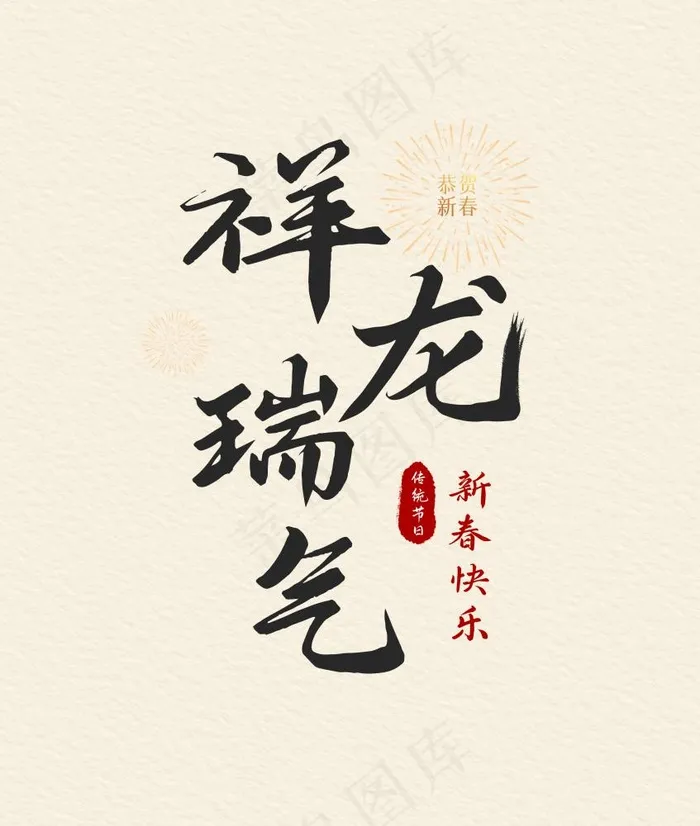 祥龙瑞气
恭贺
新春
传统节日
新春快乐